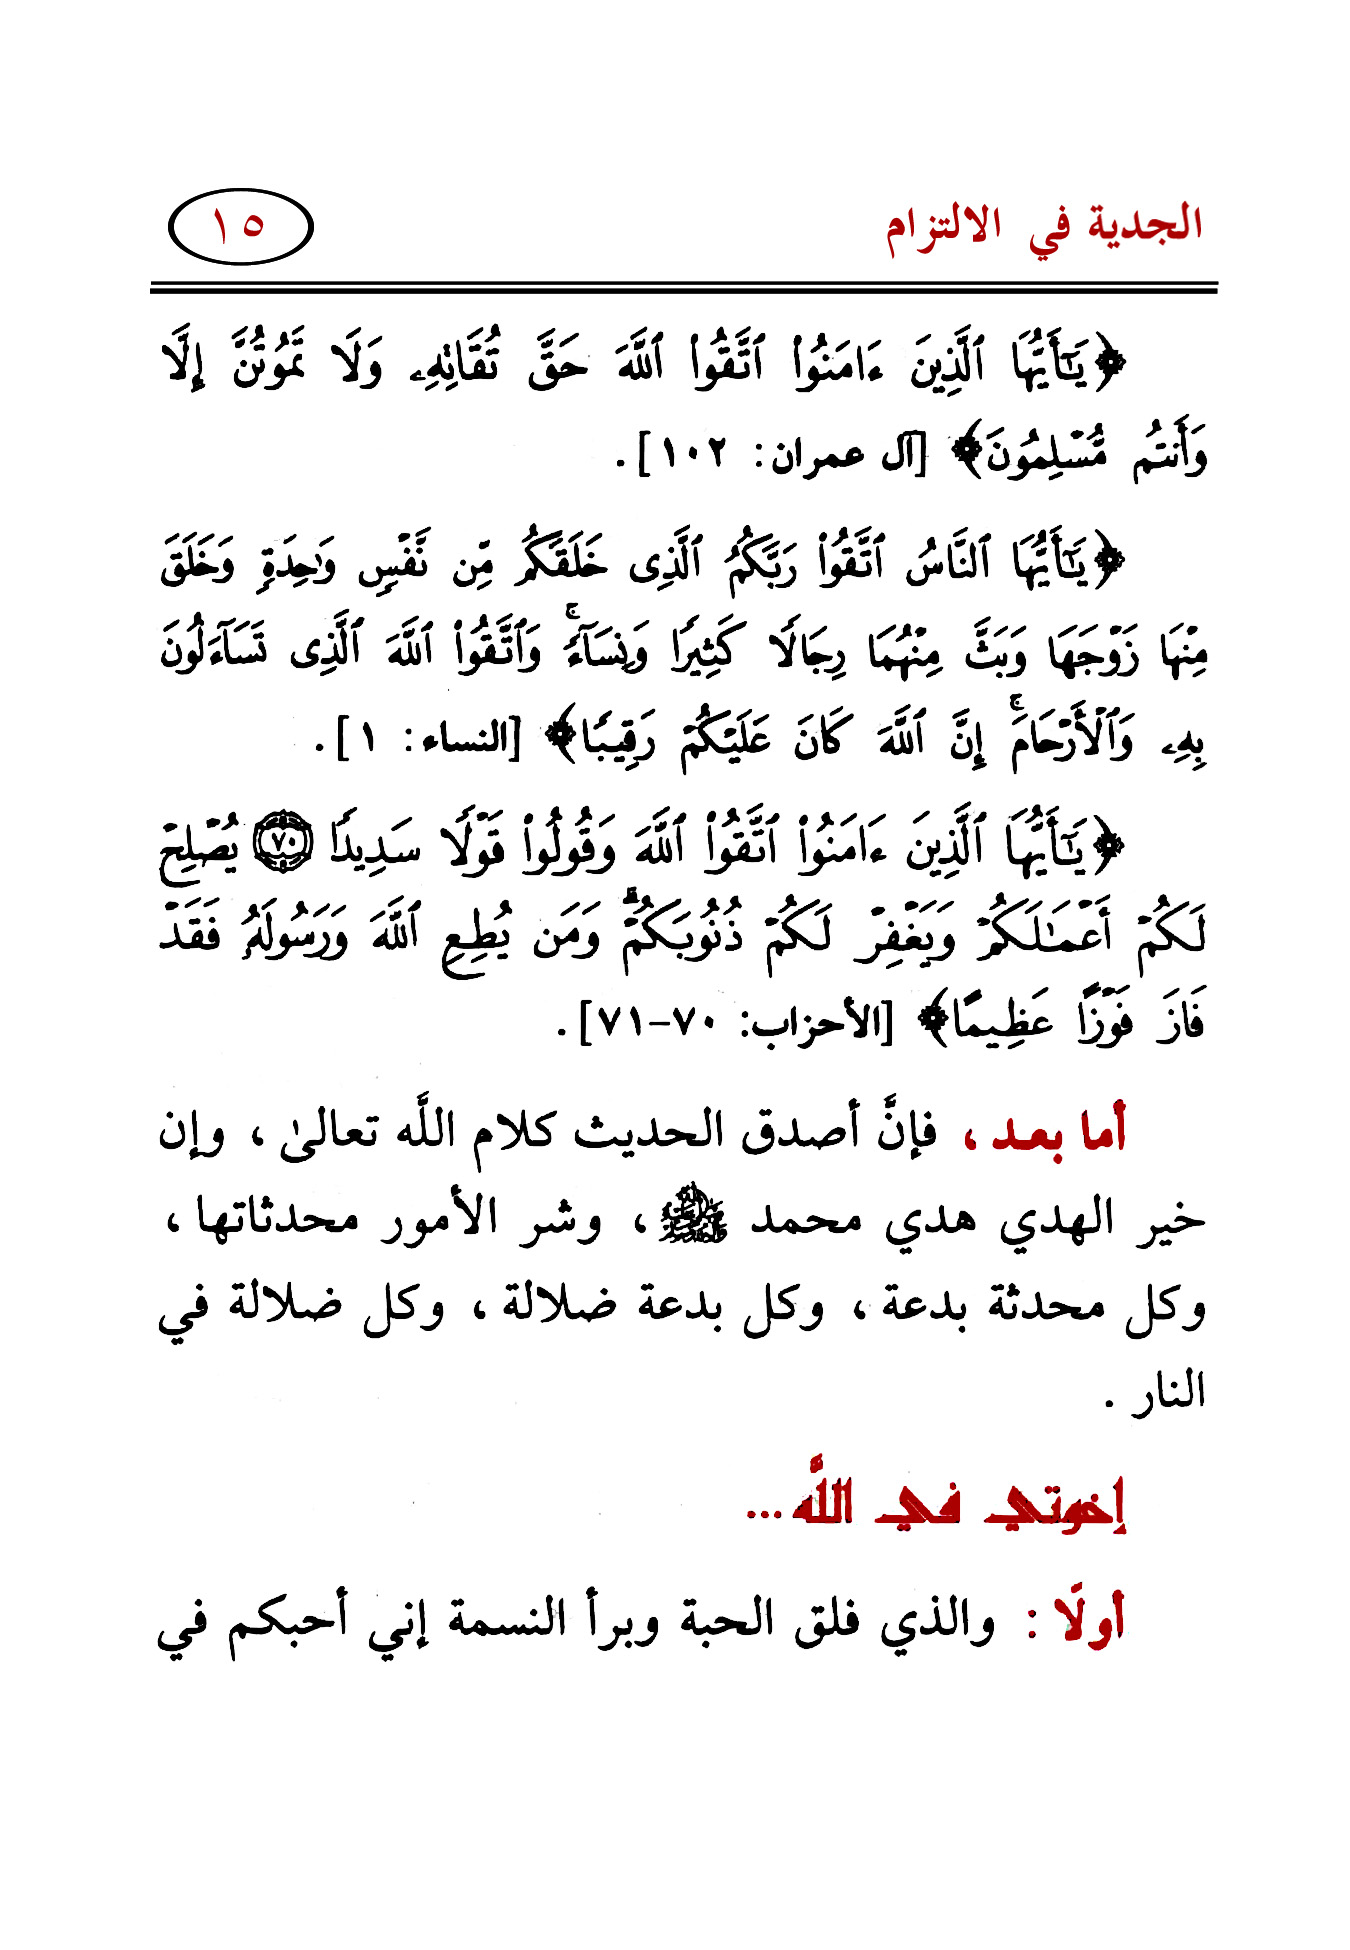 الجدية في الالتزام
١٥
﴿يَٰٓأَيُّهَا ٱلَّذِينَ ءَامَنُوا۟ ٱتَّقُوا۟ ٱللَّهَ حَقَّ تُقَاتِهِۦ وَلَا تَمُوتُنَّ إِلَّا
وَأَنتُم مُّسْلِمُونَ﴾ [آل عمران: ١٠٢].
﴿يَٰٓأَيُّهَا ٱلنَّاسُ ٱتَّقُوا۟ رَبَّكُمُ ٱلَّذِى خَلَقَكُم مِّن نَّفْسٍ وَٰحِدَةٍ وَخَلَقَ
مِنْهَا زَوْجَهَا وَبَثَّ مِنْهُمَا رِجَالًا كَثِيرًا وَنِسَآءً ۚ وَٱتَّقُوا۟ ٱللَّهَ ٱلَّذِى تَسَآءَلُونَ
بِهِۦ وَٱلْأَرْحَامَ ۚ إِنَّ ٱللَّهَ كَانَ عَلَيْكُمْ رَقِيبًا﴾ [النساء: ١].
﴿يَٰٓأَيُّهَا ٱلَّذِينَ ءَامَنُوا۟ ٱتَّقُوا۟ ٱللَّهَ وَقُولُوا۟ قَوْلًا سَدِيدًا ٧٠ يُصْلِحْ
لَكُمْ أَعْمَٰلَكُمْ وَيَغْفِرْ لَكُمْ ذُنُوبَكُمْ ۗ وَمَن يُطِعِ ٱللَّهَ وَرَسُولَهُۥ فَقَدْ
فَازَ فَوْزًا عَظِيمًا﴾ [الأحزاب: ٧٠-٧١].
أما بعد، فإنَّ أصدق الحديث كلام اللَّه تعالىٰ، وإن
خير الهدي هدي محمد ﷺ، وشر الأمور محدثاتها،
وكل محدثة بدعة، وكل بدعة ضلالة، وكل ضلالة في
النار.
إخوتي في اللَّه...
أولًا: والذي فلق الحبة وبرأ النسمة إني أحبكم في